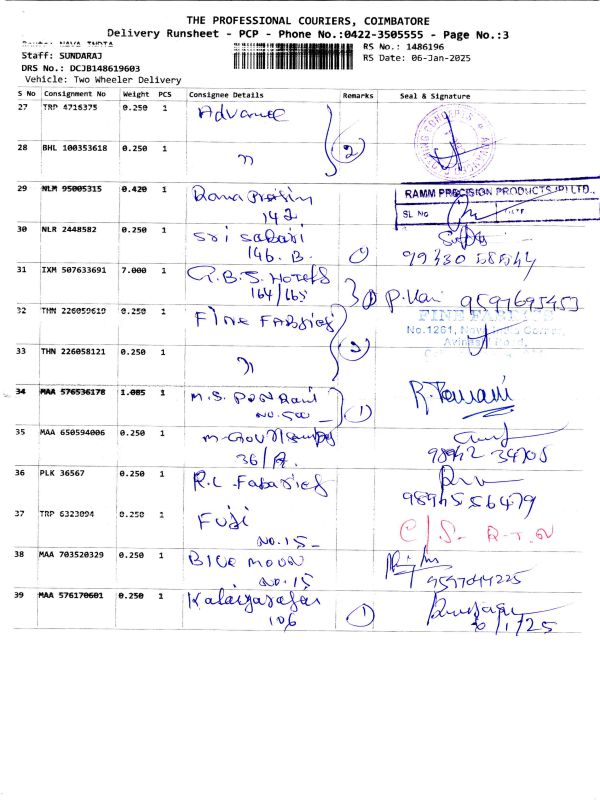 THE PROFESSIONAL COURIERS, COIMBATORE
Delivery Runsheet - PCP - Phone No.:0422-3505555 - Page No.:3
NAVA INDIA
RS No.: 1486196
Staff: SUNDARAJ
RS Date: 06-Jan-2025
DRS No.: DCJB148619603
Vehicle: Two Wheeler Delivery
S No Consignment No Weight PCS Consignee Details Remarks Seal & Signature
27 TRP 4716375 0.250 1 Advance
28 BHL 100353618 0.250 1 " 2
29 NLM 95005315 0.420 1 142
RAMM PRECISION PRODUCTS (P) LTD.,
SL NO
30 NLR 2448582 0.250 1 Sri Sabari
146. B. 1
31 IXM 507633691 7.000 1 G.B.S. Hotels
164/165 P. 9597695453
32 THN 226059619 0.250 1 Fine Fabrics
FINE FABRICS
No.1261, Nava India Corner,
Avinashi Road,
33 THN 226058121 0.250 1 " 2
34 MAA 576536178 1.085 1 M.S. Pon Rani
NO. 500 - 1
35 MAA 650594006 0.250 1
36/A. 98942 34705
36 PLK 36567 0.250 1 R.L. Fabarics
9894556479
37 TRP 6323094 0.250 1 Fuji C/S- R-T.O
NO.15 -
38 MAA 703520329 0.250 1 Blue Moon
NO.15 9597044225
39 MAA 576170601 0.250 1 Kalaiyarasan
106 1 6/1/25